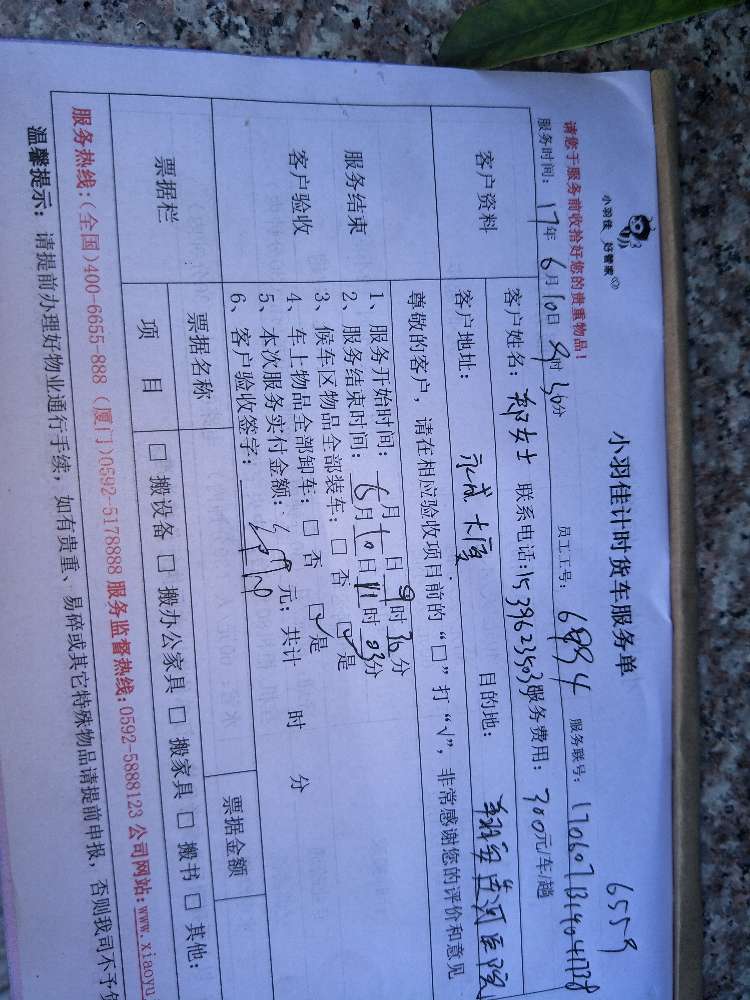 小羽佳 好管家
小羽佳计时货车服务单
6559
请您于服务前收拾好您的贵重物品！
服务时间：17年6月10日9时30分 员工工号：6994 服务联号：
客户资料
客户姓名：郑女士 联系电话：1539623503 服务费用：300元/车/趟
客户地址：永成大厦 目的地：
尊敬的客户，请在相应验收项目前的“□”打“√”，非常感谢您的评价和意见
服务结束
客户验收
1、服务开始时间：月 日9时30分
2、服务结束时间：6月10日11时03分
3、候车区物品全部装车：□否 ☑是
4、车上物品全部卸车：□否 ☑是
5、本次服务实付金额： 元；共计 时 分
6、客户验收签字：
票据栏
票据名称 票据金额
项目 □搬设备 □搬办公家具 □搬家具 □搬书 □其他：
服务热线：(全国)400-6655-888 (厦门)0592-5178888 服务监督热线：0592-5888123 公司网站：www.xiaoyu
温馨提示：请提前办理好物业通行手续，如有贵重、易碎或其它特殊物品请提前申报，否则我司不予